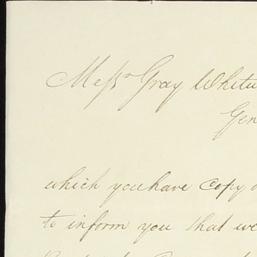 Messrs Gray Whitw
Gen
which you have copy o
to inform you that we